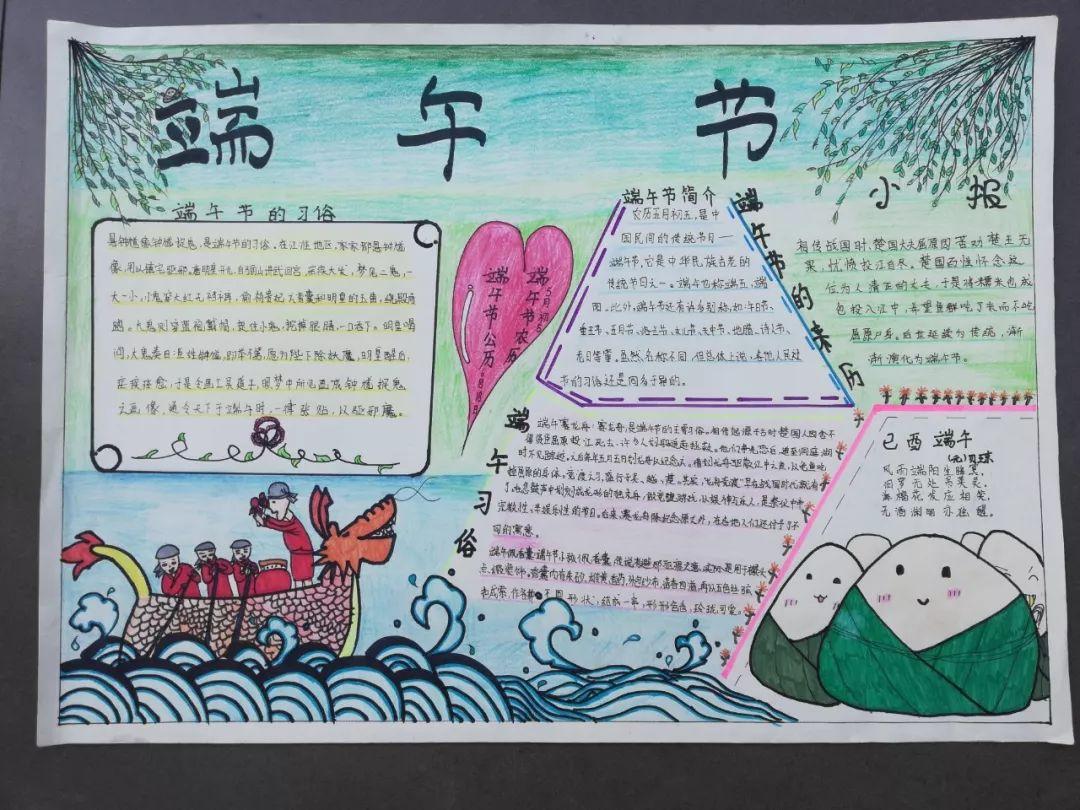 端午节
小报
端午节的习俗
悬钟馗像钟馗捉鬼，是端午节的习俗。在江淮地区，家家都悬钟馗
像，用以镇宅驱邪。唐明皇开元，自骊山讲武回宫，疟疾大发，梦见二鬼，一
大一小，小鬼穿大红无裆裤，偷杨贵妃之香囊和明皇的玉笛，绕殿而
跑。大鬼则穿蓝袍戴帽，捉住小鬼，挖掉眼睛，一口吞下。明皇喝
问，大鬼奏曰：臣姓钟馗，武举不第，愿为陛下除妖魔，明皇醒后，
疟疾痊愈，于是令画工吴道子，照梦中所见画成钟馗捉鬼
之画像，通令天下于端午时，一律张贴，以驱邪魔。
端午节农历
5月初5
端午节公历
端午节简介
农历五月初五，是中
国民间的传统节日——
端午节，它是中华民族古老的
传统节日之一。端午也称端五，端
阳。此外，端午节还有许多别称，如：午日节、
重五节、五月节、浴兰节、女儿节、天中节、地腊、诗人节、
龙日等等。虽然名称不同，但总体上说，各地人民过
节的习俗还是同多于异的。
端午节的来历
相传战国时，楚国大夫屈原因苦劝楚王无
果，忧愤投江自尽。楚国百姓怀念这
位为人清正的大夫，于是将糯米包成
包投入江中，希望鱼虾吃了米而不吃
屈原尸身。后世延续为传统，渐
渐演化为端午节。
端午习俗
端午赛龙舟：赛龙舟，是端午节的主要习俗。相传起源于古时楚国人因舍不
得贤臣屈原投江死去，许多人划船追赶拯救。他们争先恐后，追至洞庭湖
时不见踪迹。之后每年五月五日划龙舟以纪念之。借划龙舟驱散江中之鱼，以免鱼吃
掉屈原的身体。竞渡之习，盛行于吴、越、楚。其实，“龙舟竞渡”早在战国时代就有
同的寓意。
端午佩香囊：端午节小孩佩香囊，传说有避邪驱瘟之意，实际是用于襟头
点缀装饰。香囊内有朱砂、雄黄、香药，外包以丝布，清香四溢，再以五色丝线弦
扣成索，作各种不同形状，结成一串，形形色色，玲珑可爱。
己酉端午
（元）贝琼
风雨端阳生晦冥，
汨罗无处吊英灵。
海榴花发应相笑，
无酒渊明亦独醒。